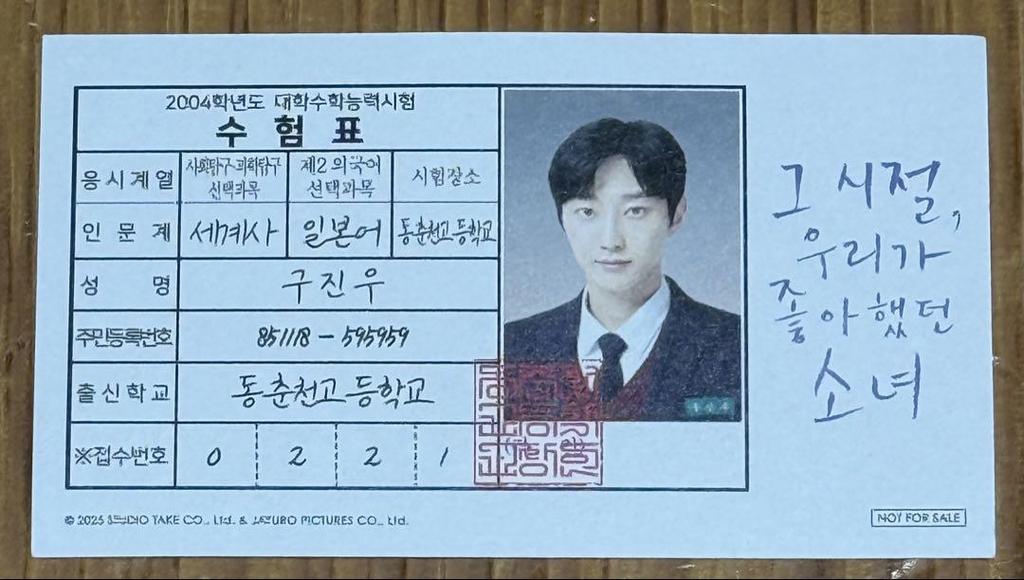 2004학년도 대학수학능력시험
수험표
응시계열 사회탐구·과학탐구 선택과목 제2외국어 선택과목 시험장소
인문계 세계사 일본어 동춘천고등학교
성명 구진우
주민등록번호 851118 - 595959
출신학교 동춘천고등학교
※접수번호 0 2 2 1
그 시절,
우리가
좋아했던
소녀
© 2025 STUDIO TAKE CO., Ltd. & PICTURES CO., Ltd.
NOT FOR SALE